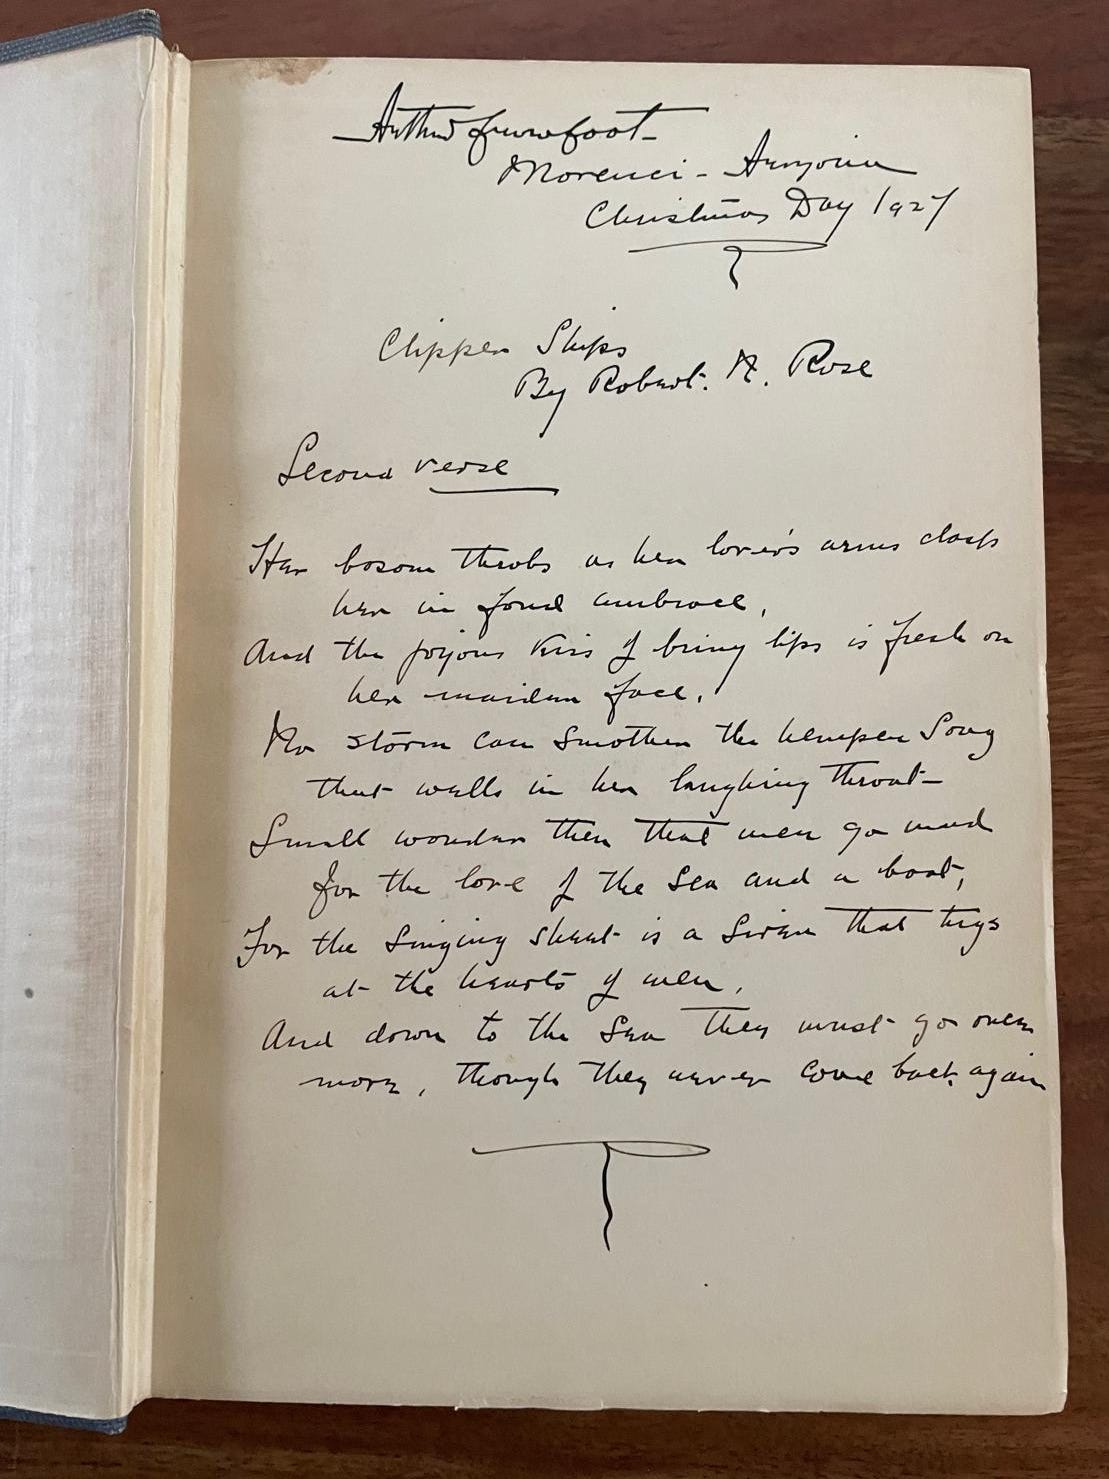 Arthur Crowfoot
Morenci - Arizona
Christmas Day 1927
Clipper Ships
By Robert. N. Rose
Second verse
Her bosom throbs as her lover's arms clasp
her in fond embrace,
And the joyous kiss of briny lips is fresh on
her maiden face.
No storm can smother the hempen song
that wells in her laughing throat
Small wonder then that men go mad
for the love of the sea and a boat,
For the singing sheet is a siren that tugs
at the hearts of men,
And down to the sea they must go once
more, though they never come back again